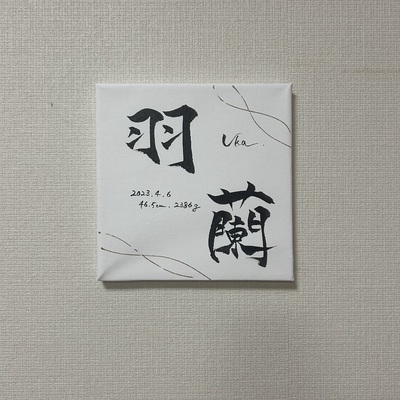 羽蘭
Uka.
2023.4.6
46.5cm. 2386g